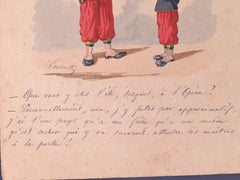 — Que vous y êtes l'été, sergent, à l'Opéra ?
— Personnellement, non, j'y fûtes par approximatif.
J'ai t'un pays qu'a un frère qu'a un cousin
qu'est cocher qui y va souvent attendre ses maîtres
à la porte !